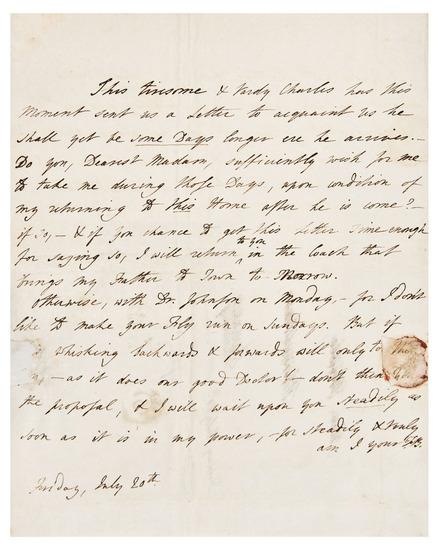 This tiresome & tardy Charles has this
Moment sent us a Letter to acquaint us he
shall yet be some Days longer ere he arrives. —
Do you, Dearest Madam, sufficiently wish for me
to take me during those Days, upon condition of
my returning to this Home after he is come? —
if so, — & if you chance to get this Letter time enough
for saying so, I will return to you in the Coach that
brings my Father to Town to Morrow.
Otherwise, with Dr. Johnson on Monday — for I don't
like to make your Fly run on Sundays. But if
whisking backwards & forwards will only
— as it does our good Doctor! — don't
the proposal, & I will wait upon you steadily as
soon as it is in my power, — for steadily & truly
am I yours
Friday, July 20th.